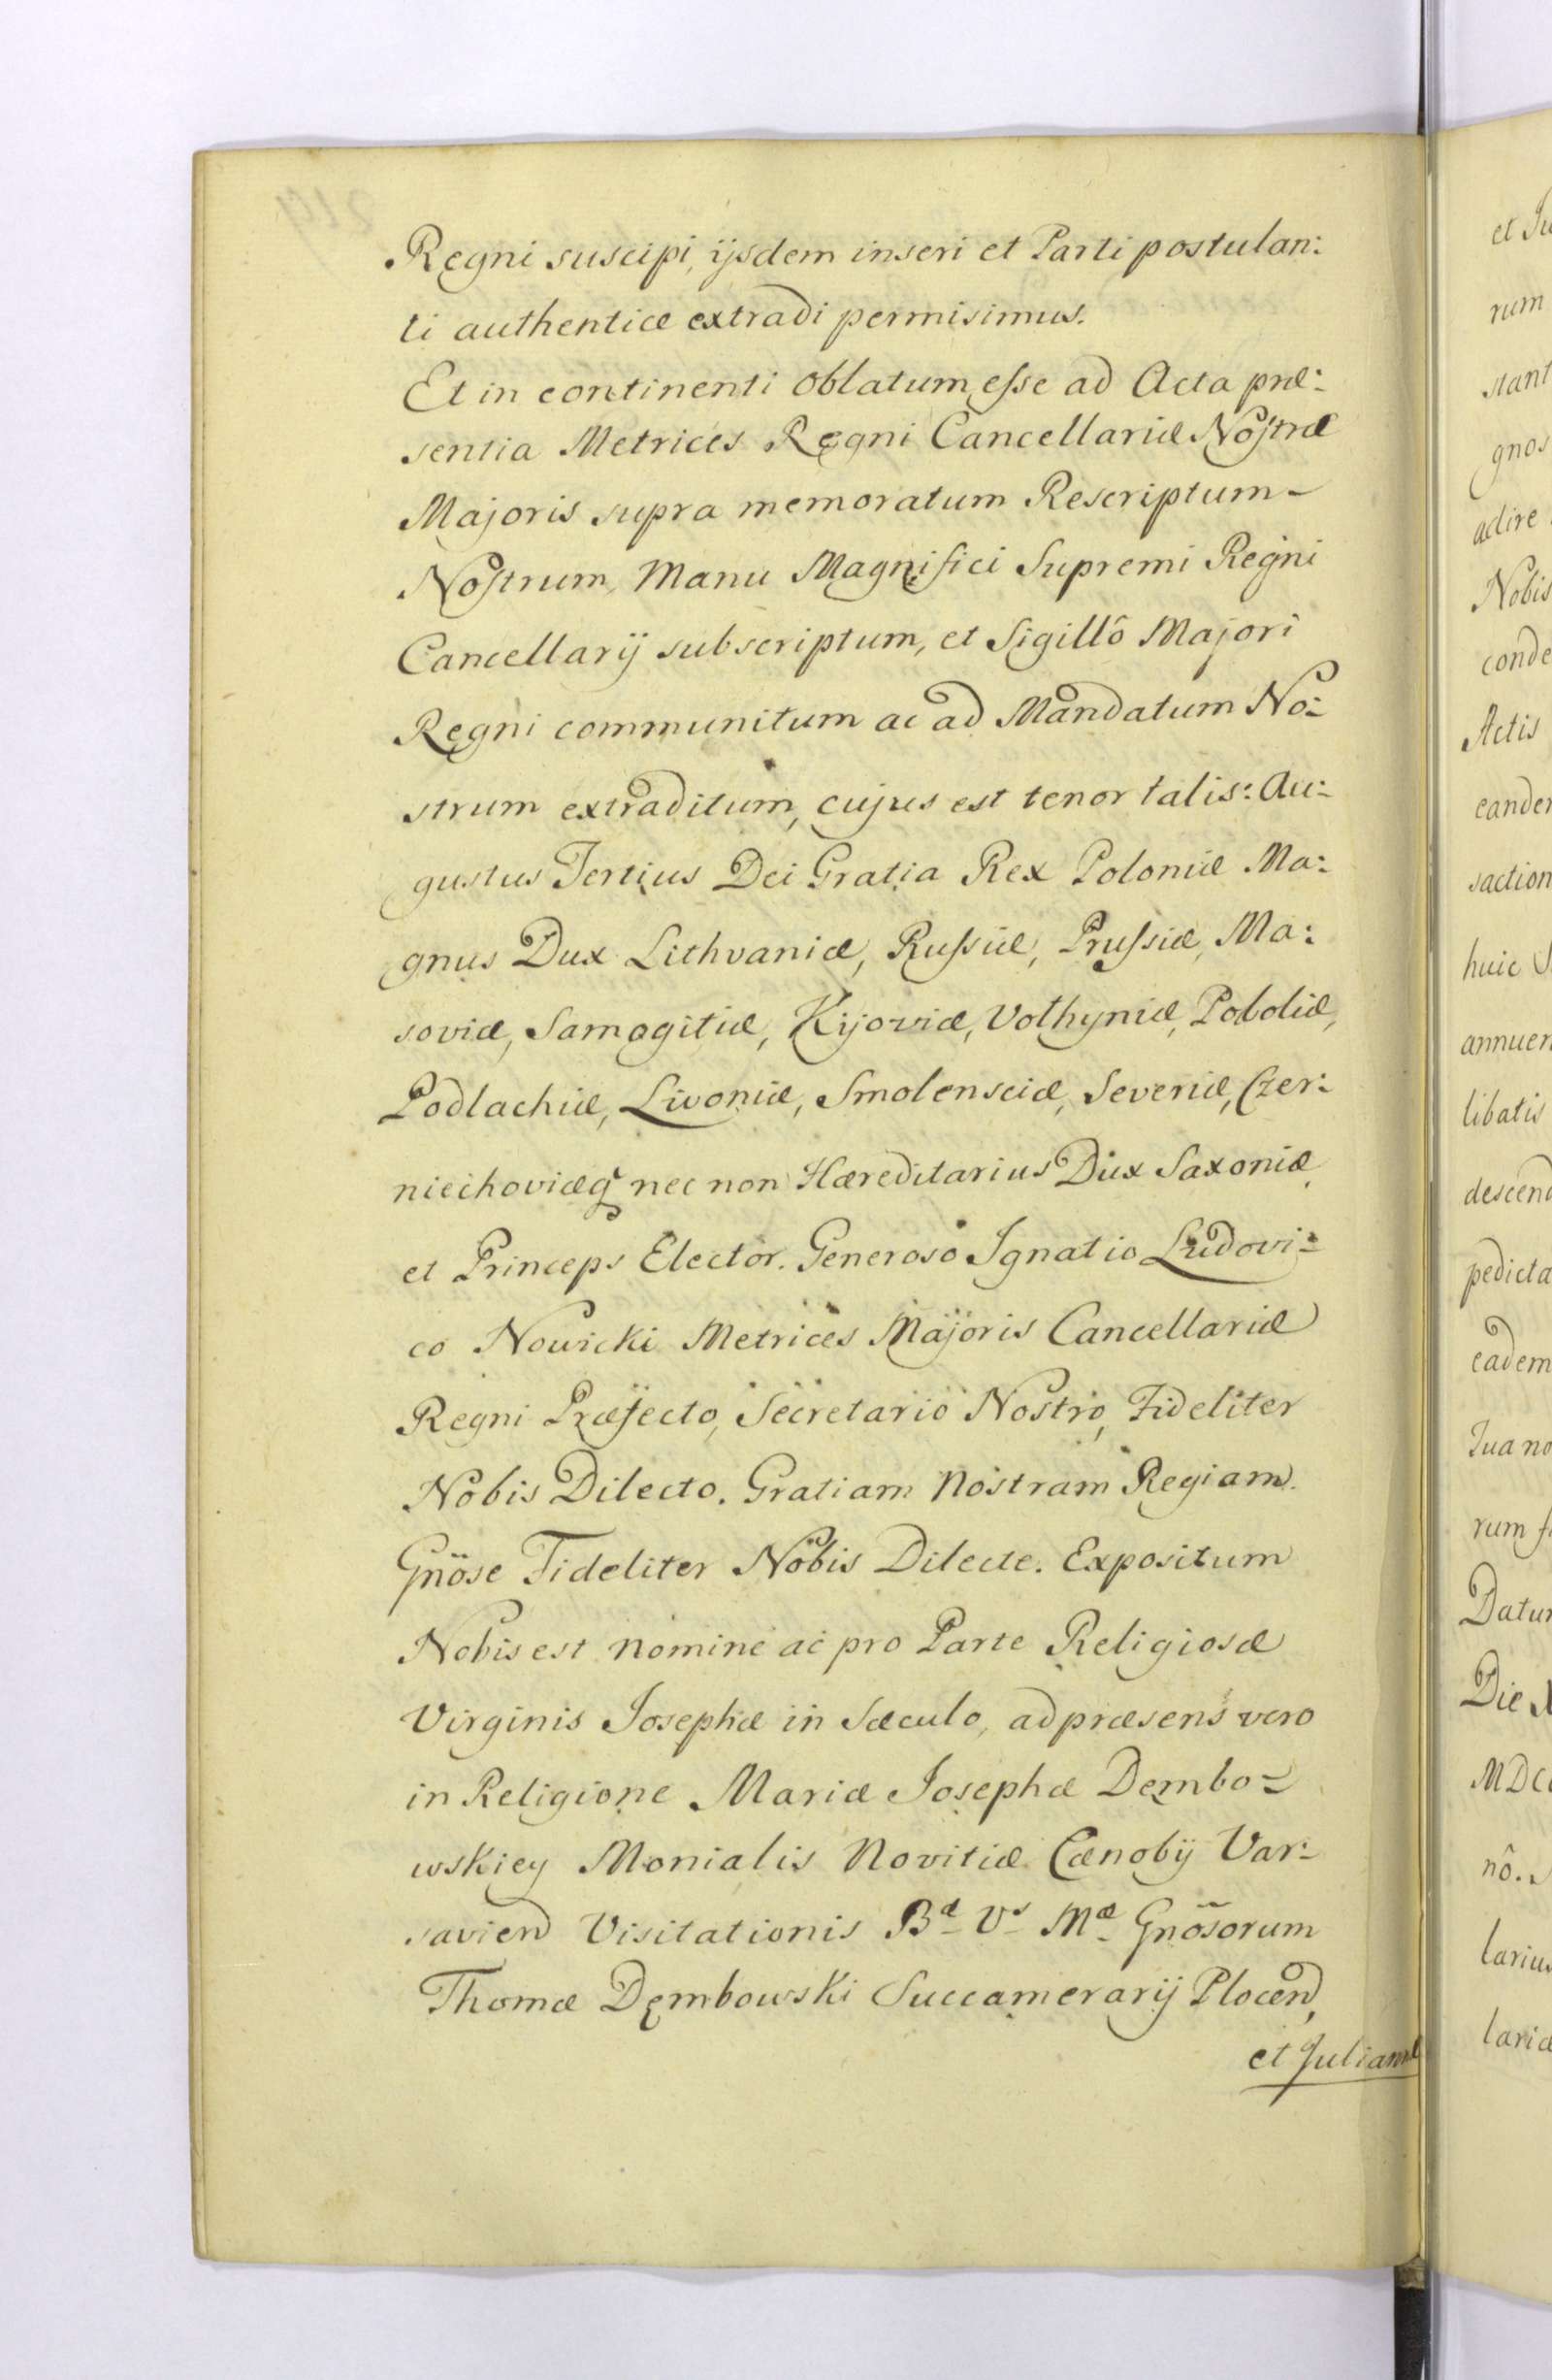 Regni suscipi, ijsdem inseri et Parti postulan:
ti authenticæ extradi permisimus.
Et in continenti oblatum esse ad Acta præ:
sentia Metrices Regni Cancellariæ Nostræ
Majoris supra memoratum Rescriptum
Nostrum, Manu Magnifici Supremi Regni
Cancellarij subscriptum, et Sigillô Majori
Regni communitum ac ad Mandatum No:
strum extraditum, cujus est tenor talis: Au:
gustus Tertius Dei Gratia Rex Poloniæ Ma:
gnus Dux Lithvaniæ, Russiæ, Prussiæ, Ma:
soviæ, Samogitiæ, Kijoviæ, Volhyniæ, Podoliæ,
Podlachiæ, Livoniæ, Smolensciæ, Severiæ, Czer:
niechoviæq nec non Hæreditarius Dux Saxoniæ
et Princeps Elector. Generoso Ignatio Ludovi:
co Nowicki Metrices Majoris Cancellariæ
Regni Præfecto, Secretario Nostro, Fideliter
Nobis Dilecto. Gratiam Nostram Regiam.
Gnöse Fideliter Nobis Dilecte. Expositum
Nobis est nomine ac pro Parte Religiosæ
Virginis Josephæ in Sæculo, ad præsens vero
in Religione Mariæ Josephæ Dembo:
wskiey Monialis Novitiæ Cænobij Var:
savien Visitationis Bæ Vs Mæ Gnõsorum
Thomæ Dembowski Succamerarij Plocen,
et Juliannæ
et Ju
rum
stant
gnos
adire
Nobis
conde
Actis
eander
saction
huic S
annuen
libatis
descend
pedicta
eadem
Tua no
rum f
Datum
Die
MDCC
nô.
larius
lariæ